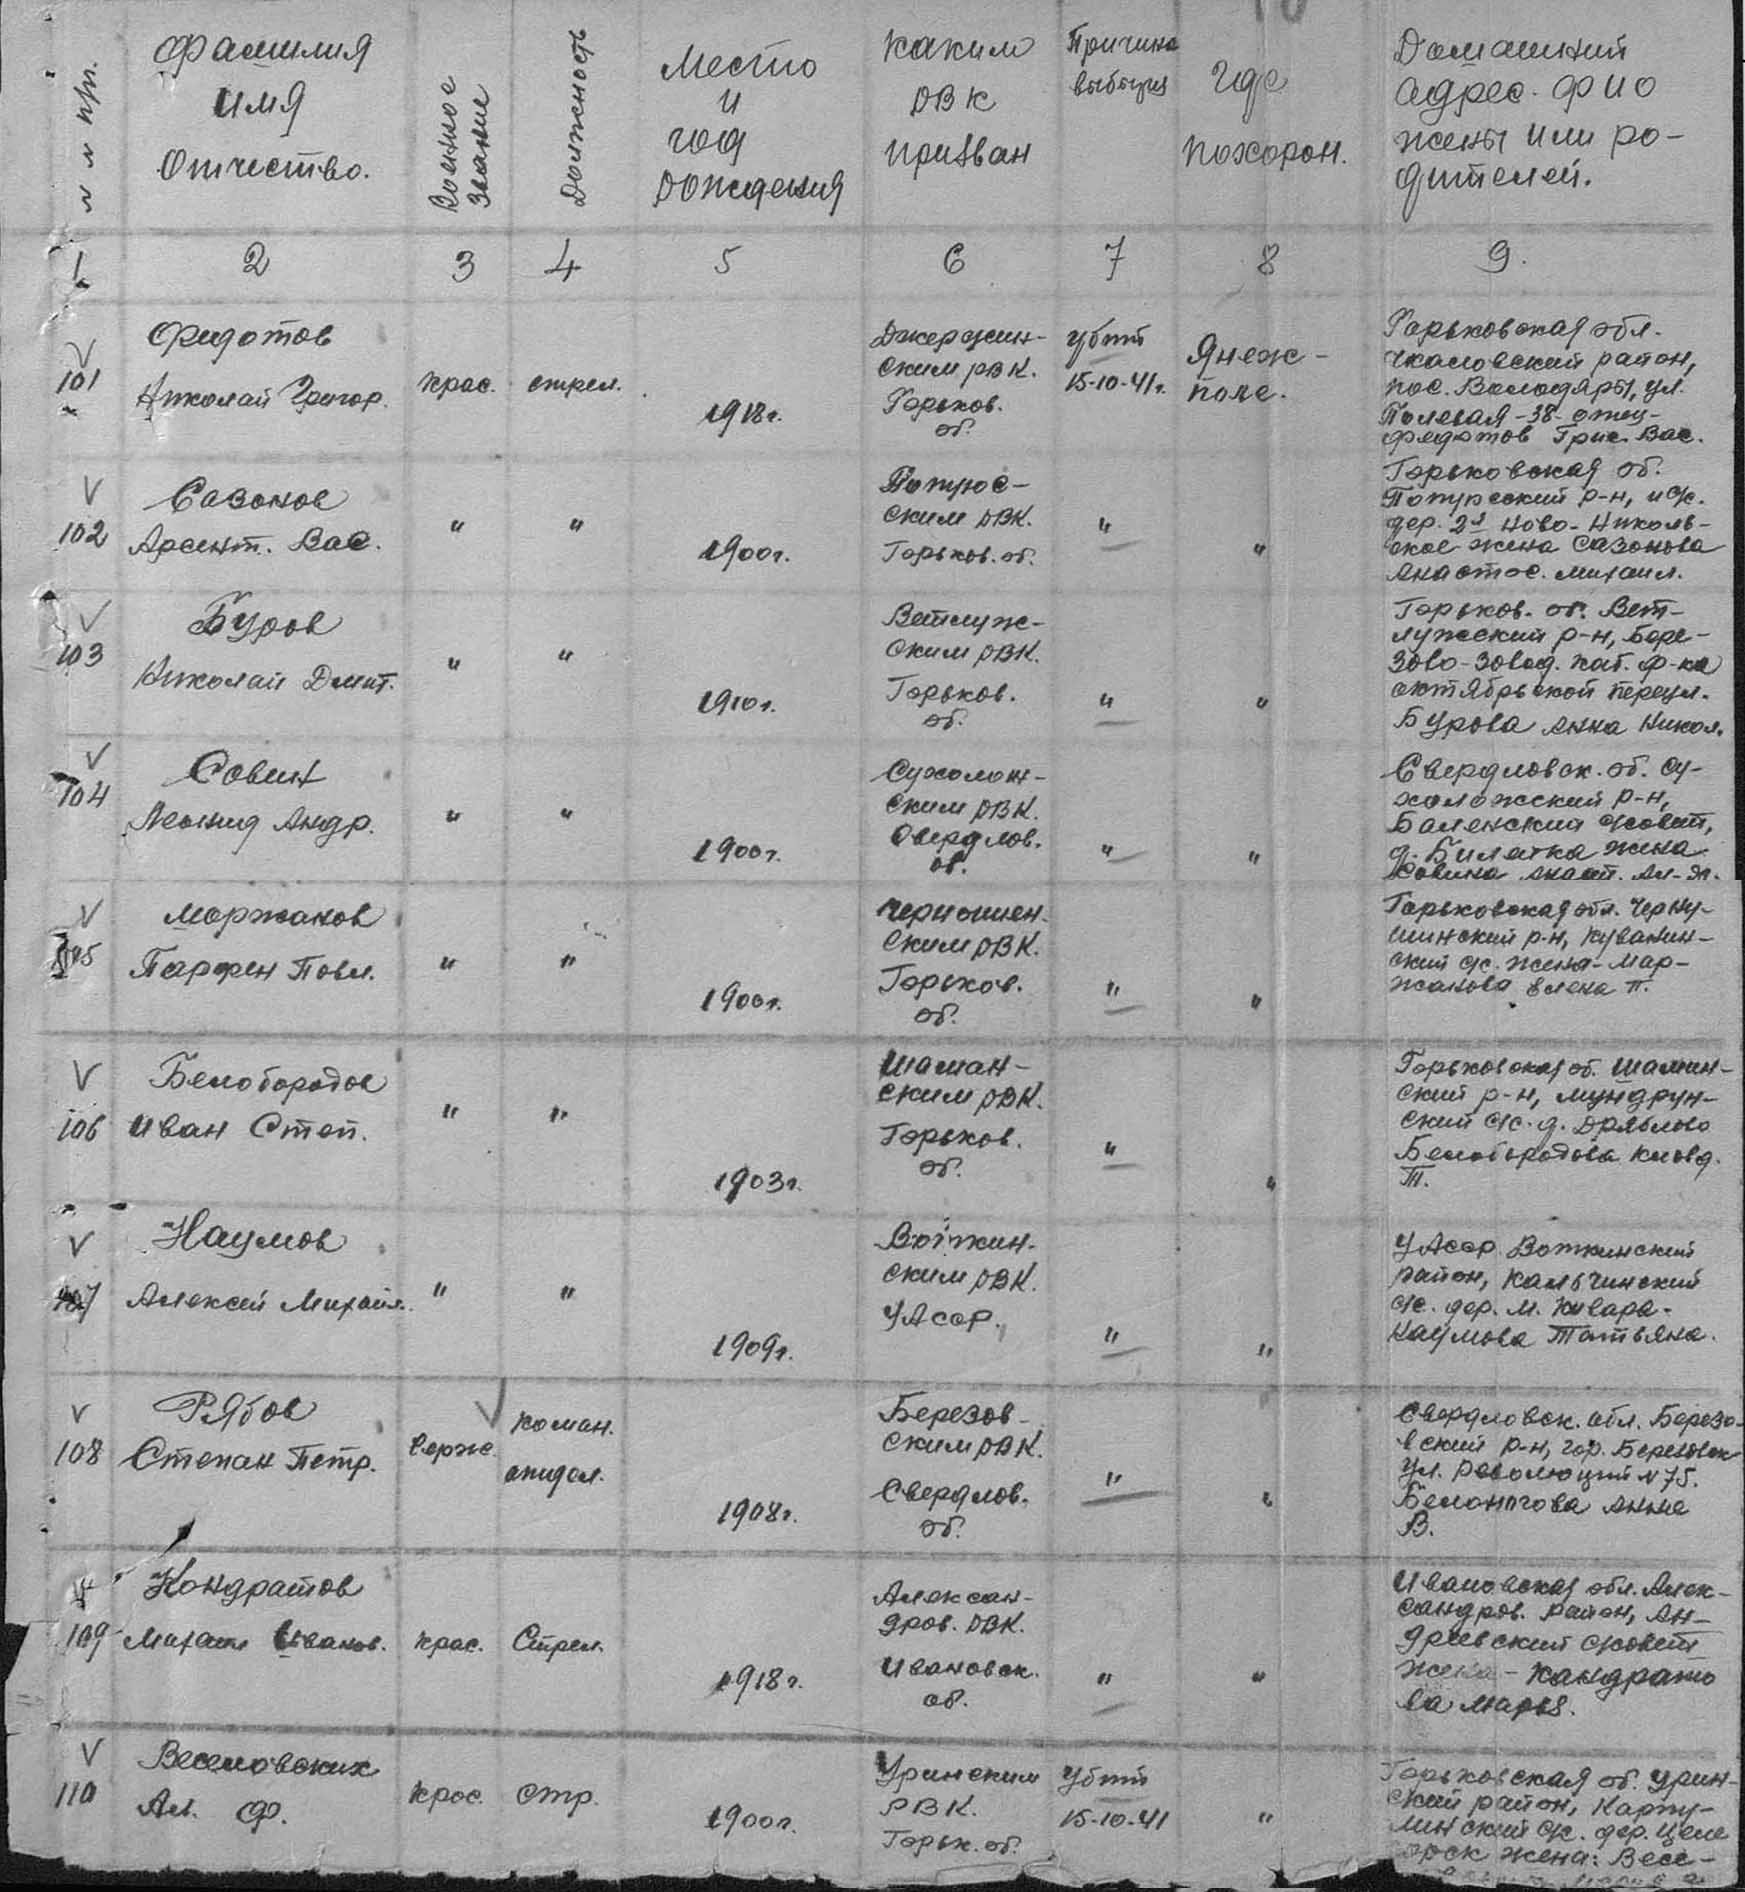 № № пп.
Фамилия
Имя
Отчество.
Военное
Звание
Должность
Место
и
год
рождения
Каким
РВК
призван
Причина
выбытия
где
похорон.
Домашний
адрес. ФИО
жены или ро-
дителей.
1 2 3 4 5 6 7 8 9.
101
Федотов
Николай Григор.
Крас.
стрел.
1918г.
Дзержин-
ским РВК.
Горьков.
об.
убит
15-10-41г.
Янеж-
поле.
Горьковская обл.
Чкаловский район,
пос. Володяры, ул.
Полевая-38-отец-
Федотов Григ. Вас.
102
Сазонов
Арсент. Вас.
" "
1900г.
ским РВК.
Горьков. об.
"
"
Горьковская об.
р-н, и с/с.
дер. 2я Ново-Николь-
ское жена Сазонова
Анастас. Михаил.
103
Буров
Николай Дмит.
" "
1910г.
Ветлуж-
ским РВК.
Горьков.
об.
"
"
Горьков. об. Вет-
лужский р-н, Бере-
зово-Завод. кат. ф-ка
октябрьской переул.
Бурова Анна Никол.
104
Совин
Леонид Андр.
" "
1900г.
Сухолож-
ским РВК.
Свердлов.
об.
"
"
Свердловск. об. Су-
холожский р-н,
сковет,
д. жена
Совина Анаст. Ал-др.
105
Моржанов
Парфен Павл.
" "
1900г.
Черношен-
ским РВК.
Горьков.
об.
"
"
Горьковская обл. Черну-
шинский р-н, Куванин-
ский с/с. жена-Мар-
жанова Елена П.
106
Белобородов
Иван Степ.
" "
1903г.
Шаман-
ским РВК.
Горьков.
об.
"
"
Горьковская об. Шамин-
ский р-н, Мундрун-
ский с/с. д. Дряблово
Белобородова Клавд.
Т.
107
Наумов
Алексей Михайл.
" "
1909г.
Воткин-
ским РВК.
УАССР.
"
"
УАССР Воткинский
район, Кальчинский
с/с. дер. М. Кивара-
Наумова Татьяна.
108
Рябов
Степан Петр.
Серже
коман.
отдел.
1908г.
Березов-
ским РВК.
Свердлов.
об.
"
"
Свердловск. обл. Березо-
вский р-н, гор. Березовск
ул. Революций №75.
Белоногова Анна
В.
109
Кондратов
Михаил Иванов.
Крас.
Стрел.
1918г.
Алексан-
дров. РВК.
Ивановск.
об.
"
"
Ивановская обл. Алек-
сандров. район, Ан-
дреевский сковет
жена-Кандрато
ва Марья.
110
Веселовских
Ал. Ф.
Крас.
стр.
1900г.
Уринским
РВК.
Горьк. об.
убит
15-10-41
"
Горьковская об. Урин-
ский район, Карпу-
нинский с/с. дер.
жена: Весе-